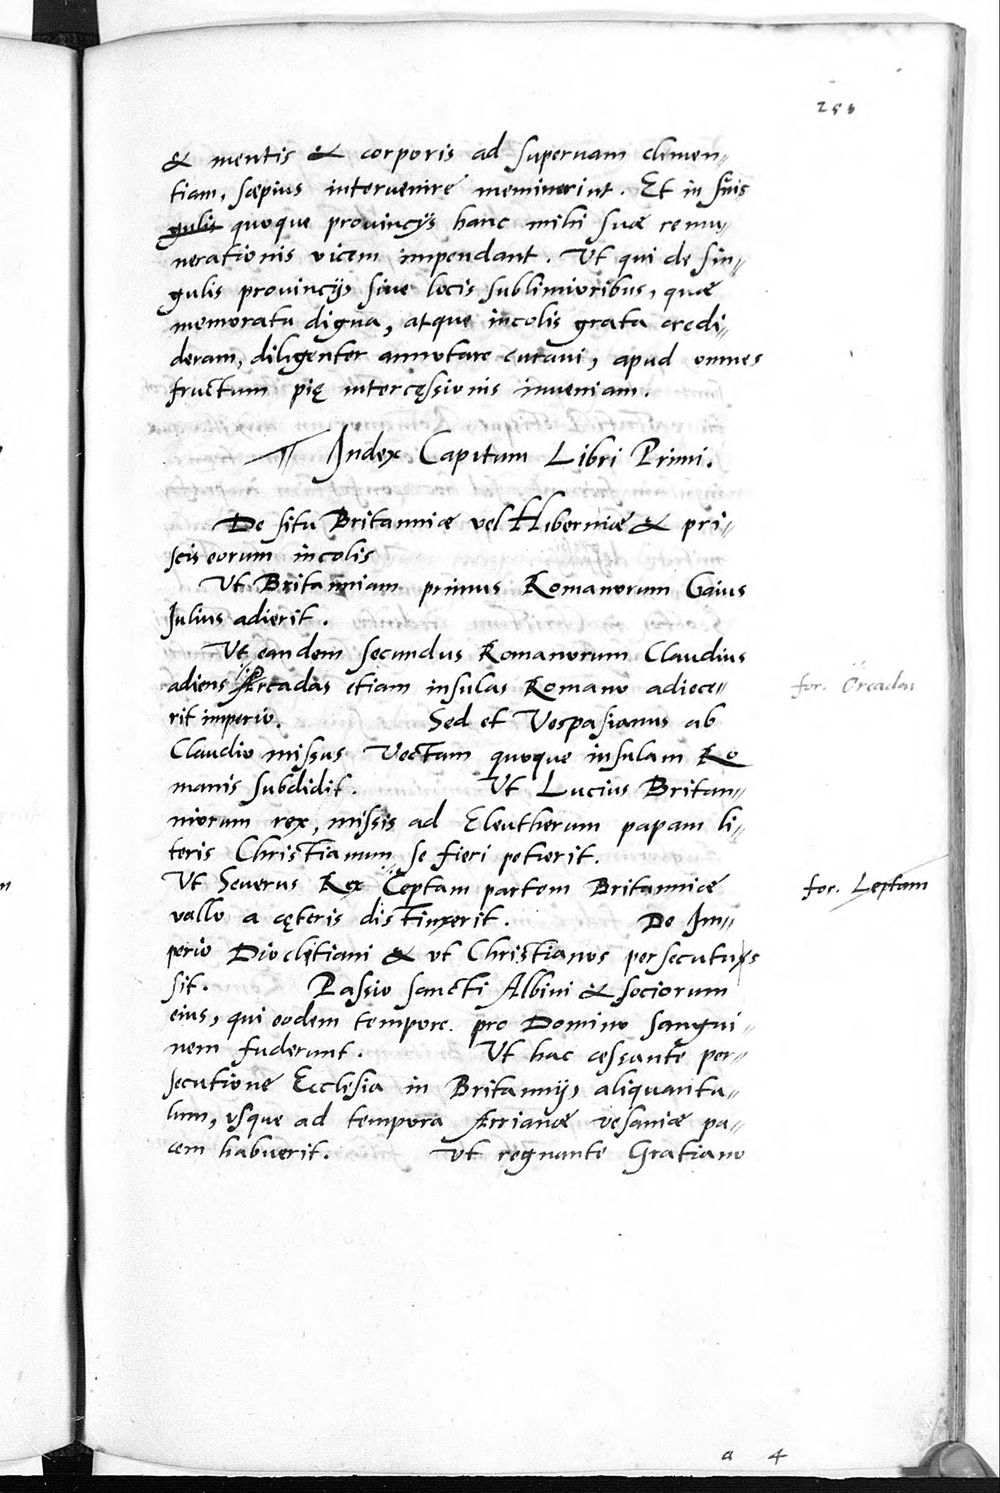 & mentis & corporis ad supernam clemen„
tiam, sæpius intervenire meminerint. Et in suis
gulis quoque provincijs hanc mihi suæ remu„
nerationis vicem impendant. Ut qui de sin„
gulis provincijs sive locis sublimioribus, quæ
memoratu digna, atque incolis grata credi„
deram, diligenter annotare curavi, apud omnes
fructum pię intercęssionis inveniam.
Index Capitum Libri Primi.
De situ Britanniæ vel Hiberniæ & pri„
scis eorum incolis
Ut Britanniam primus Romanorum Gaius
Julius adierit.
Ut eandem secundus Romanorum Claudius
adiens Arcadas etiam insulas Romano adiece„
rit imperio. Sed et Vespasianus ab
Claudio missus Vectam quoque insulam Ro
manis subdidit. Ut Lucius Britan„
niorum rex, missis ad Eleutherum papam li„
teris Christianum se fieri petierit.
Ut Severus Rex Ceptam partem Britanniæ
vallo a cęteris distinxerit. De Im„
perio Dioclitiani & ut Christianos persecutus
sit. Passio sancti Albini & sociorum
eius, qui eodem tempore pro Domino sangui„
nem fuderunt. Ut hac cessante per„
secutione Ecclesia in Britannijs aliquantu„
lum, usque ad tempora Arrianæ vesaniæ pa„
cem habuerit. Ut regnante Gratiano
for. Orcadas
for. Leptam
a 4